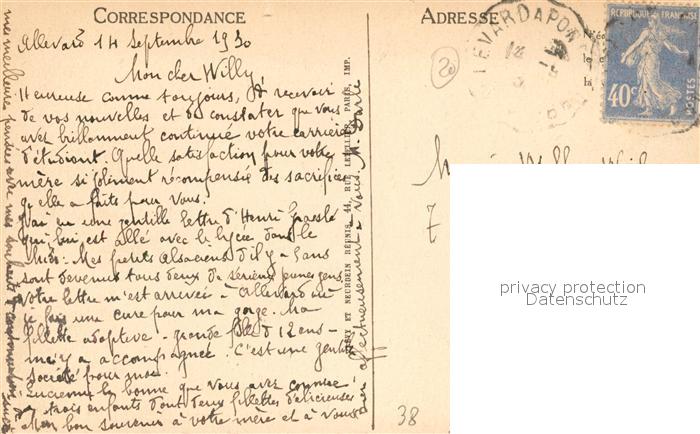 CORRESPONDANCE
Allevard 14 Septembre 1930
Mon cher Willy,
Heureuse comme toujours, de recevoir
de vos nouvelles et de constater que vous
avez brillamment continué votre carrière
d'étudiant. Quelle satisfaction pour votre
mère si joliment récompensée des sacrifices
qu'elle a faits pour vous.
J'ai eu une gentille lettre d'Henri
qui lui est allé avec le lycée dans le
Midi. Mes petits alsaciens d'il y a 5 ans
sont devenus tous deux de sérieux jeunes gens.
Votre lettre m'est arrivée à Allevard où
je fais une cure pour ma gorge. Ma
fillette adoptive - grande fille de 12 ans -
m'y a accompagnée. C'est une gentille
société pour moi.
la bonne que vous avez connue
a trois enfants dont deux fillettes délicieuses
Mon bon souvenir à votre mère et à vous
mes meilleures pensées avec mes souhaits
affectueusement à vous. M.
LEVY ET NEURDEIN RÉUNIS, 44, RUE LETELLIER, PARIS, IMP.
ADRESSE
20
RÉPUBLIQUE FRANÇAISE
40c
POSTES
7
38
privacy protection
Datenschutz